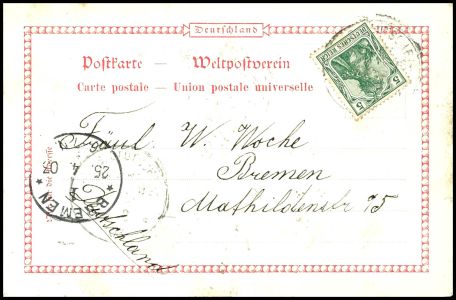 Deutschland
Postkarte — Weltpostverein
Carte postale — Union postale universelle
DEUTSCHES REICH
5
5
Fräul W. Woche
Bremen
Mathildenstr 75
Deutschland
BREMEN
25
4
02
die Adresse